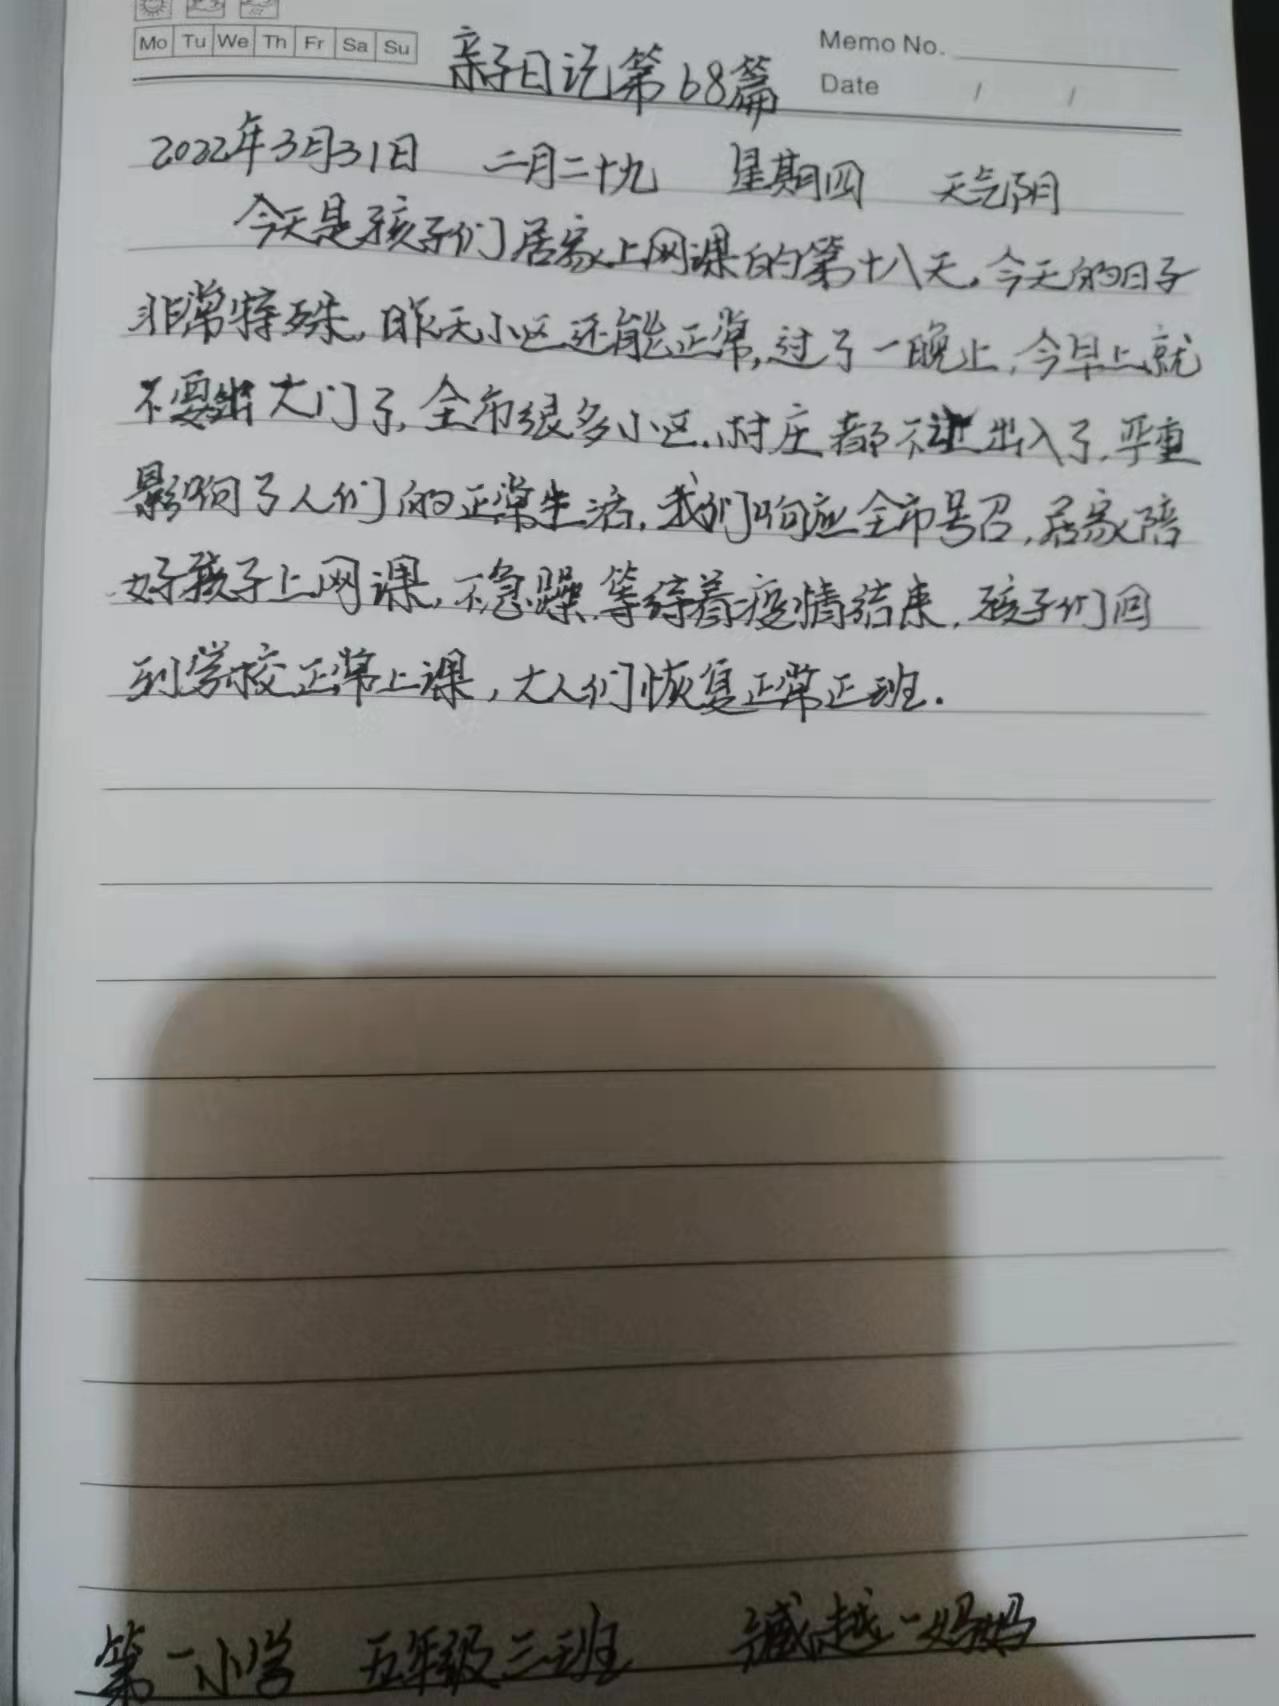 Mo Tu We Th Fr Sa Su
Memo No.
Date / /
亲子日记第68篇
2022年3月31日 二月二十九 星期四 天气阴
今天是孩子们居家上网课的第十八天。今天的日子
非常特殊,昨天小区还能正常,过了一晚上,今早上就
不要出大门了,全市很多小区,村庄都不让出入了,严重
影响了人们的正常生活,我们响应全市号召,居家陪
好孩子上网课,不急躁,等待着疫情结束,孩子们回
到学校正常上课,大人们恢复正常正班.
第一小学 五年级三班 越一妈妈